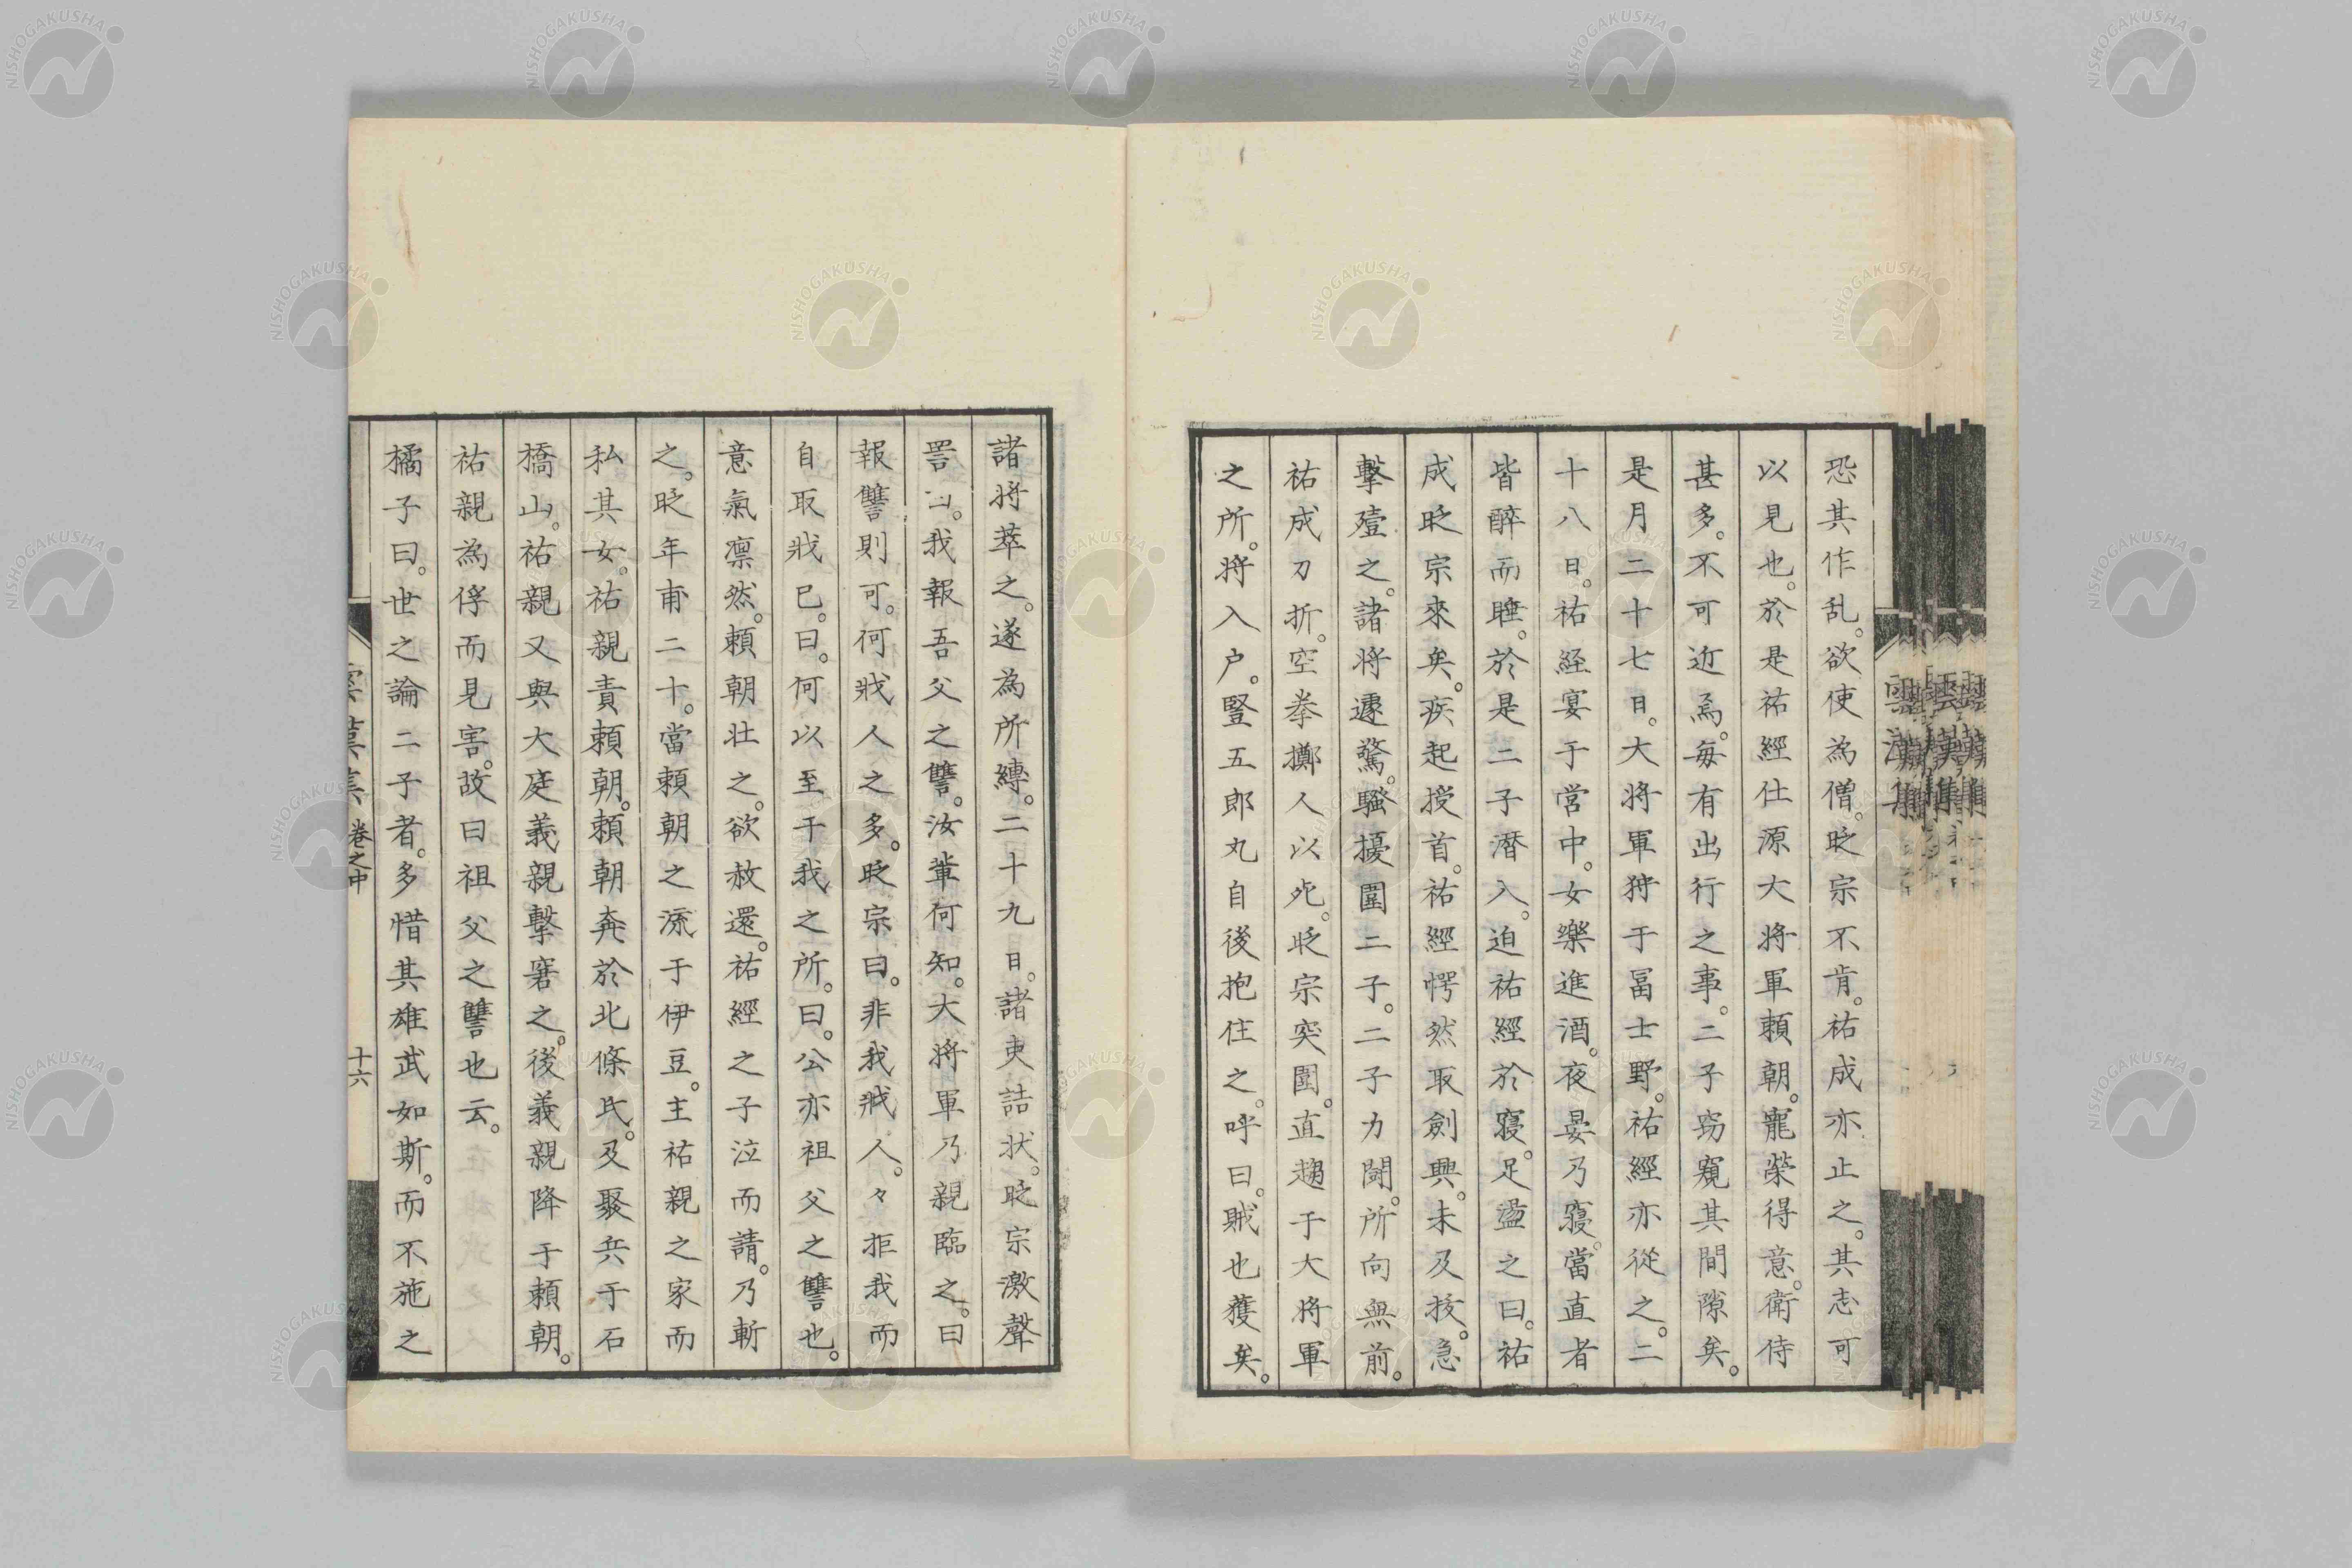 恐其作乱。欲使為僧。旼宗不肯。祐成亦止之。其志可
以見也。於是祐經仕源大将軍頼朝。寵榮得意。衛侍
甚多。不可近焉。毎有出行之事。二子窃窺其間隙矣。
是月二十七日。大将軍狩于冨士野。祐經亦從之。二
十八日。祐経宴于営中。女樂進酒。夜晏乃寢。當直者
皆醉而睡。於是二子潜入。迫祐經於寢。足盪之曰。祐
成旼宗來矣。疾起授首。祐經愕然取劍興。未及抜。急
撃殪之。諸将遽驚。騷擾圍二子。二子力鬪。所向無前。
祐成刀折。空拳擲人以死。旼宗突圍。直趨于大将軍
之所。将入戸。豎五郎丸自後抱住之。呼曰。賊也獲矣。
諸将萃之。遂為所縛。二十九日。諸吏詰状。旼宗激聲
詈曰。我報吾父之讐。汝輩何知。大将軍乃親臨之。曰
報讐則可。何戕人之多。旼宗曰。非我戕人。々拒我而
自取戕已。曰。何以至于我之所。曰。公亦祖父之讐也。
意氣凛然。頼朝壮之。欲赦還。祐經之子泣而請。乃斬
之。旼年甫二十。當頼朝之流于伊豆。主祐親之家而
私其女。祐親責頼朝。頼朝奔於北條氏。及聚兵于石
橋山。祐親又與大庭義親撃窘之。後義親降于頼朝。
祐親為俘而見害。故曰祖父之讐也云。
橘子曰。世之論二子者。多惜其雄武如斯。而不施之
雲漢集 卷之中 十六